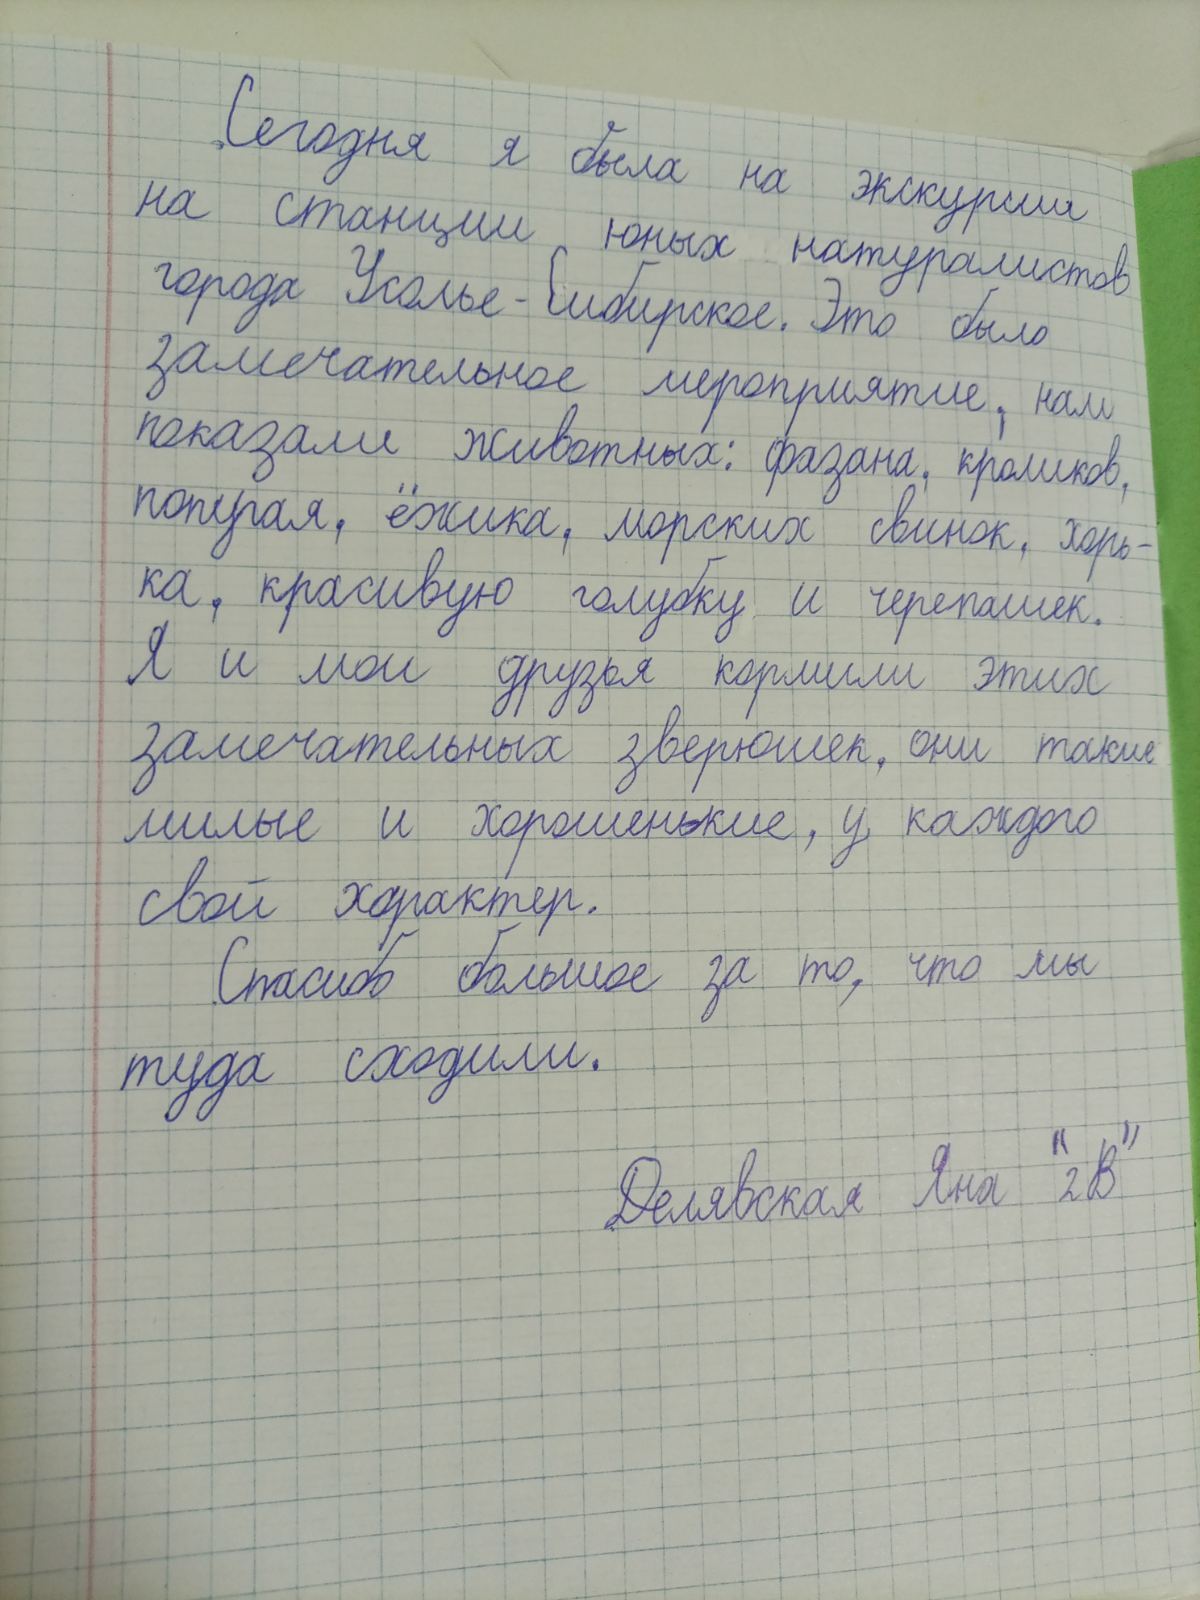 Сегодня я была на экскурсии
на станции юных натуралистов
города Усолье-Сибирское. Это было
замечательное мероприятие, нам
показали животных: фазана, кроликов,
попугая, ёжика, морских свинок, хорь-
ка, красивую голубку и черепашек.
Я и мои друзья кормили этих
замечательных зверюшек, они такие
милые и хорошенькие, у каждого
свой характер.
Спасибо большое за то, что мы
туда сходили.
Делявская Яна "2В"